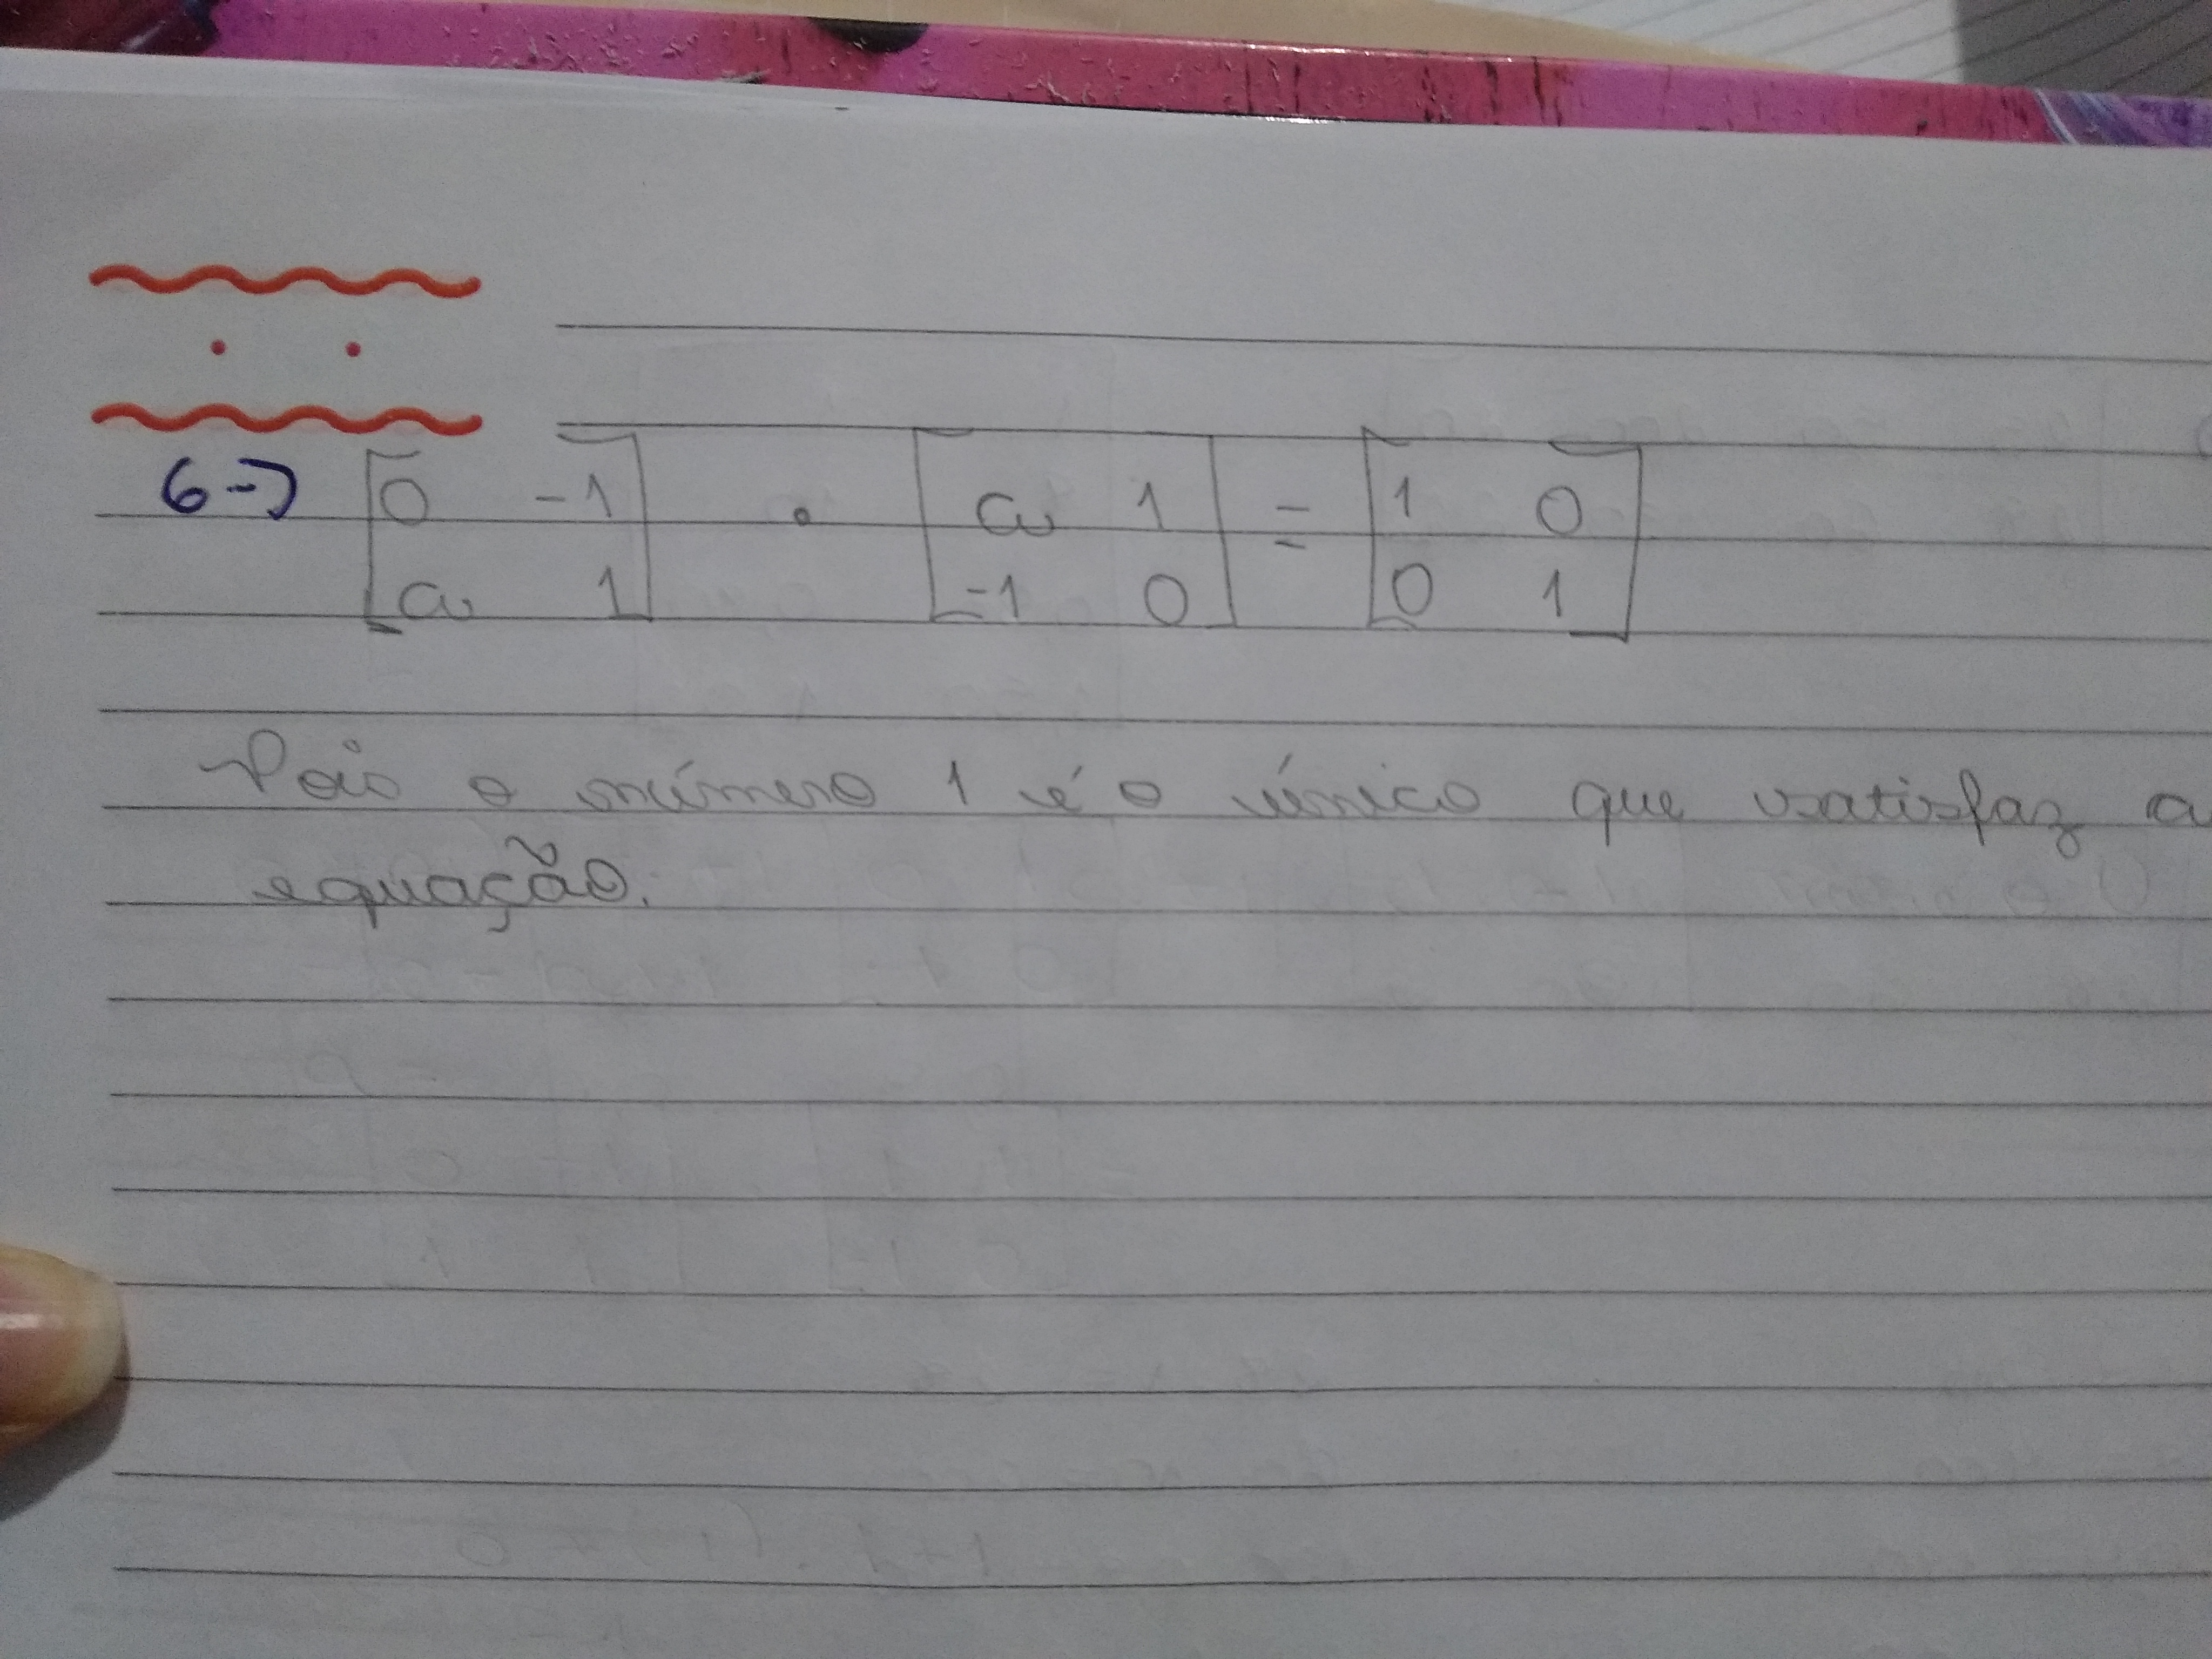 6-) [0 -1] . [a 1] = [1 0]
[a 1] [-1 0] [0 1]
Pois o número 1 é o único que satisfaz a
equação.